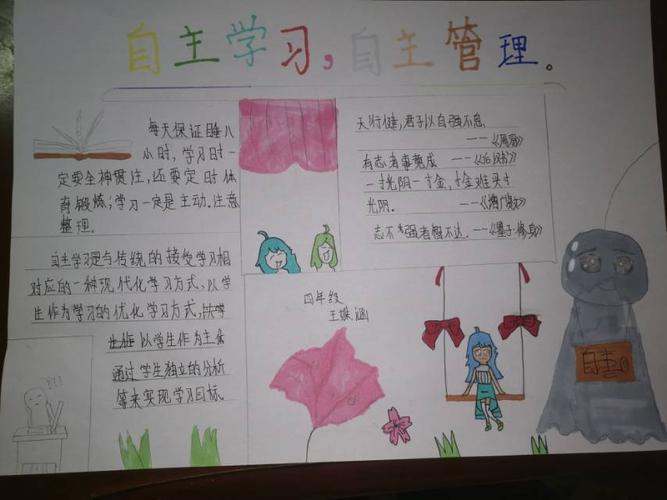 自主学习,自主管理。
每天保证睡八
小时,学习时一
定要全神贯注,还要定时体
育锻炼;学习一定是主动,注意
整理.
天行健,君子以自强不息.
——《周易》
有志者事竟成 ——《后汉书》
一寸光阴一寸金,寸金难买寸
光阴.
志不强者智不达.——《墨子·修身》
自主学习是与传统的接受学习相
对应的一种现代化学习方式,以学
生作为学习的优化学习方式,
以学生作为主体
通过学生独立的分析
等来实现学习目标.
四年级
王 涵
???